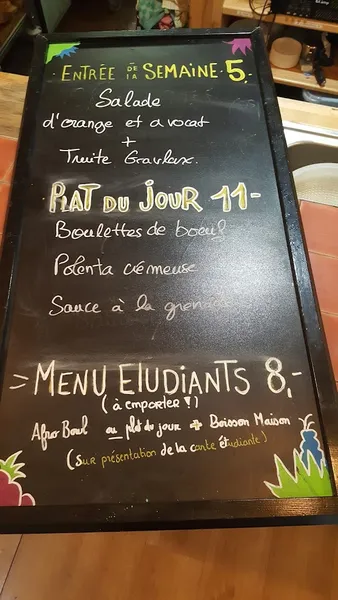 ENTRÉE DE LA SEMAINE 5.
Salade
d'orange et avocat
+
Truite Gravlax.
PLAT DU JOUR 11-
Boulettes de boeuf
Polenta crémeuse
Sauce à la grenade
=> MENU ETUDIANTS 8,-
(à emporter !)
Afro Bowl ou plat du jour + Boisson Maison
(sur présentation de la carte étudiante)